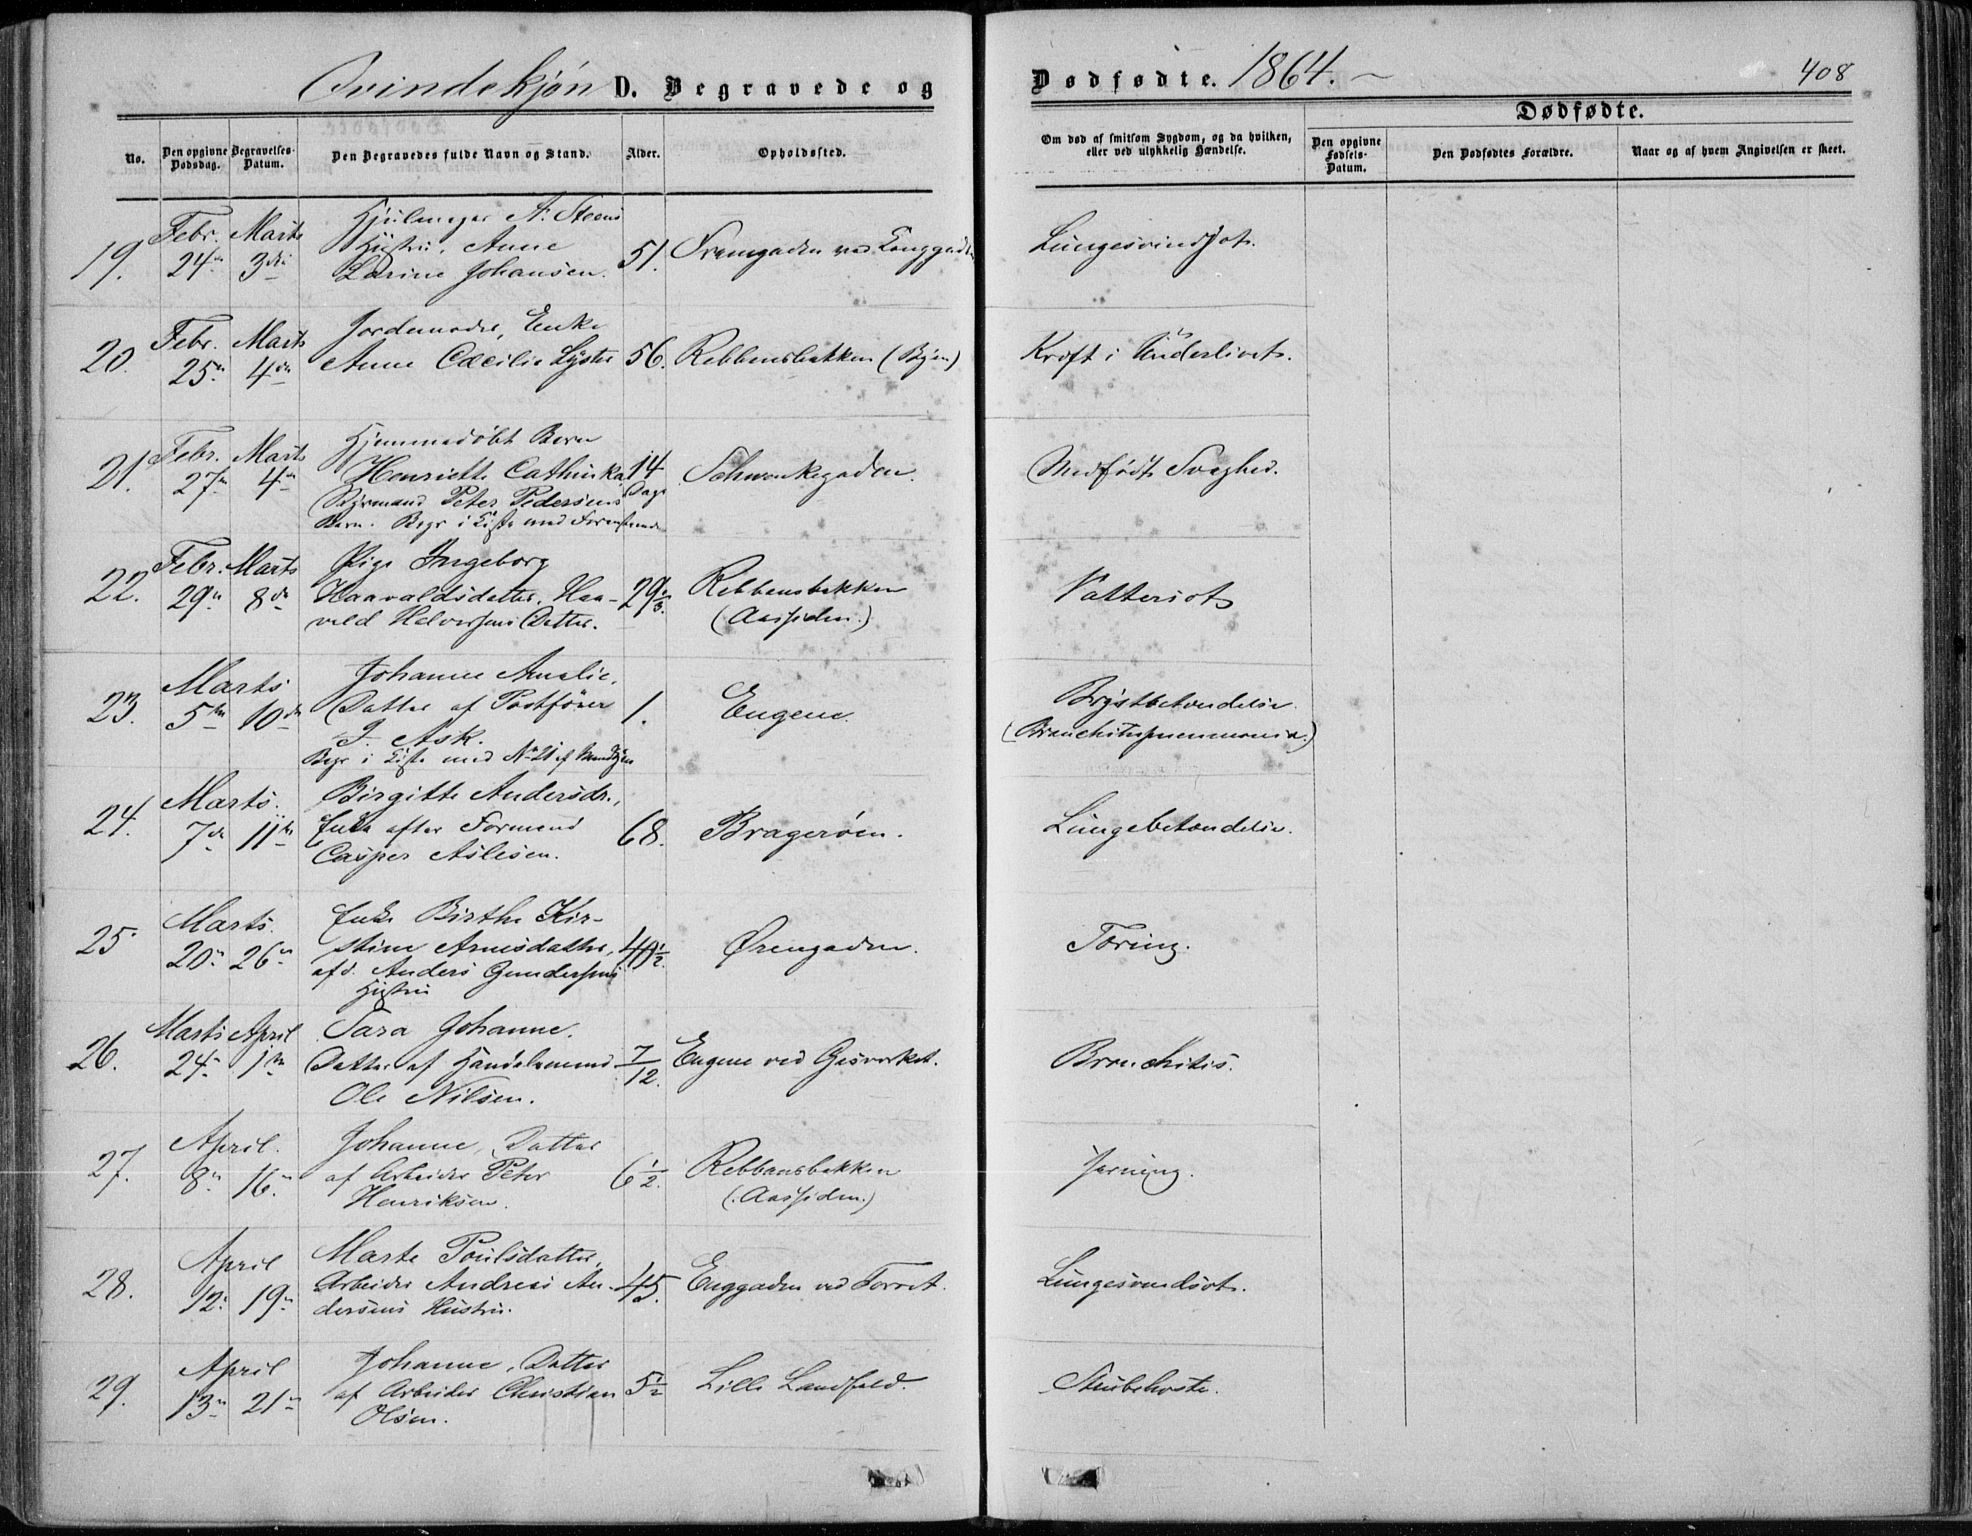 Qvindekjøn D. Begravede og Dødfødte. 1864. 408
No.
Den opgivne Dødsdag.
Begravelses-Datum.
Den Begravedes fulde Navn og Stand.
Alder.
Opholdssted.
Om død af smitsom Sygdom, og da hvilken,
eller ved ulykkelig Hændelse.
Dødfødte.
Den opgivne Fødsels-Datum.
Den Dødfødtes Forældre.
Naar og af hvem Angivelsen er skeet.
Hjulmager A. Steens
Febr. Marts Hustru, Anne
19. 24de 3die Larine Johansen. 51. Lungesvindsot.
Febr. Marts Jordemoder, Enke
20. 25de 4de Anne Cæcilie Lyster 56. Rebbansbakken (Byen) Kræft i Underlivet.
Febr. Marts Hjemmedøbt Barn
21. 27de 4de Henriette Cathinka 14 Schwenkegaden. Medfødt Svaghed.
Styrmand Peter Pedersens Dage
Barn. Begr i Kiste med
Febr. Marts Pige Ingeborg
22. 29de 8de Haavaldsdatter, Haa- 29 Rebbansbakken Vattersot
vald Halvorsens Datter. (Aassiden.)
Marts Johanne Amalie,
23. 5te 10de Datter af Postfører 1. Engene. Brystbetændelse.
J. Ask. (Bronchitis pneumonia.)
Begr i Kiste med No 21 af Mandkjøn
Marts. Birgitte Andersdr.,
24. 7de 11te Enke efter Formand 68. Bragerøen. Lungebetændelse.
Casper Aslesen.
Marts. Enke Birthe Kir-
25 20de 26de stine Arnesdatter, 40½ Ørengaden. Tæring.
afd. Anders Gundersens
Hustru
Marts April Sara Johanne.
26. 24de 1ste Datter af Handelsmand 7/12. Engene ved Gasværket. Bronchitis.
Ole Nilsen.
April. Johanne, Datter
27. 8de 16de af Arbeider Peter 6½. Rebbansbakken
Henriksen. (Aassiden.)
April Marte Poulsdatter,
28. 12te 19de Arbeider Andreas An- 45. Enggaden ved Torvet. Lungesvindsot.
dersens Hustru.
April Johanne, Datter
29. 13de 21de af Arbeider Christian 5½ Lille Landfald. Strubehoste.
Olsen.